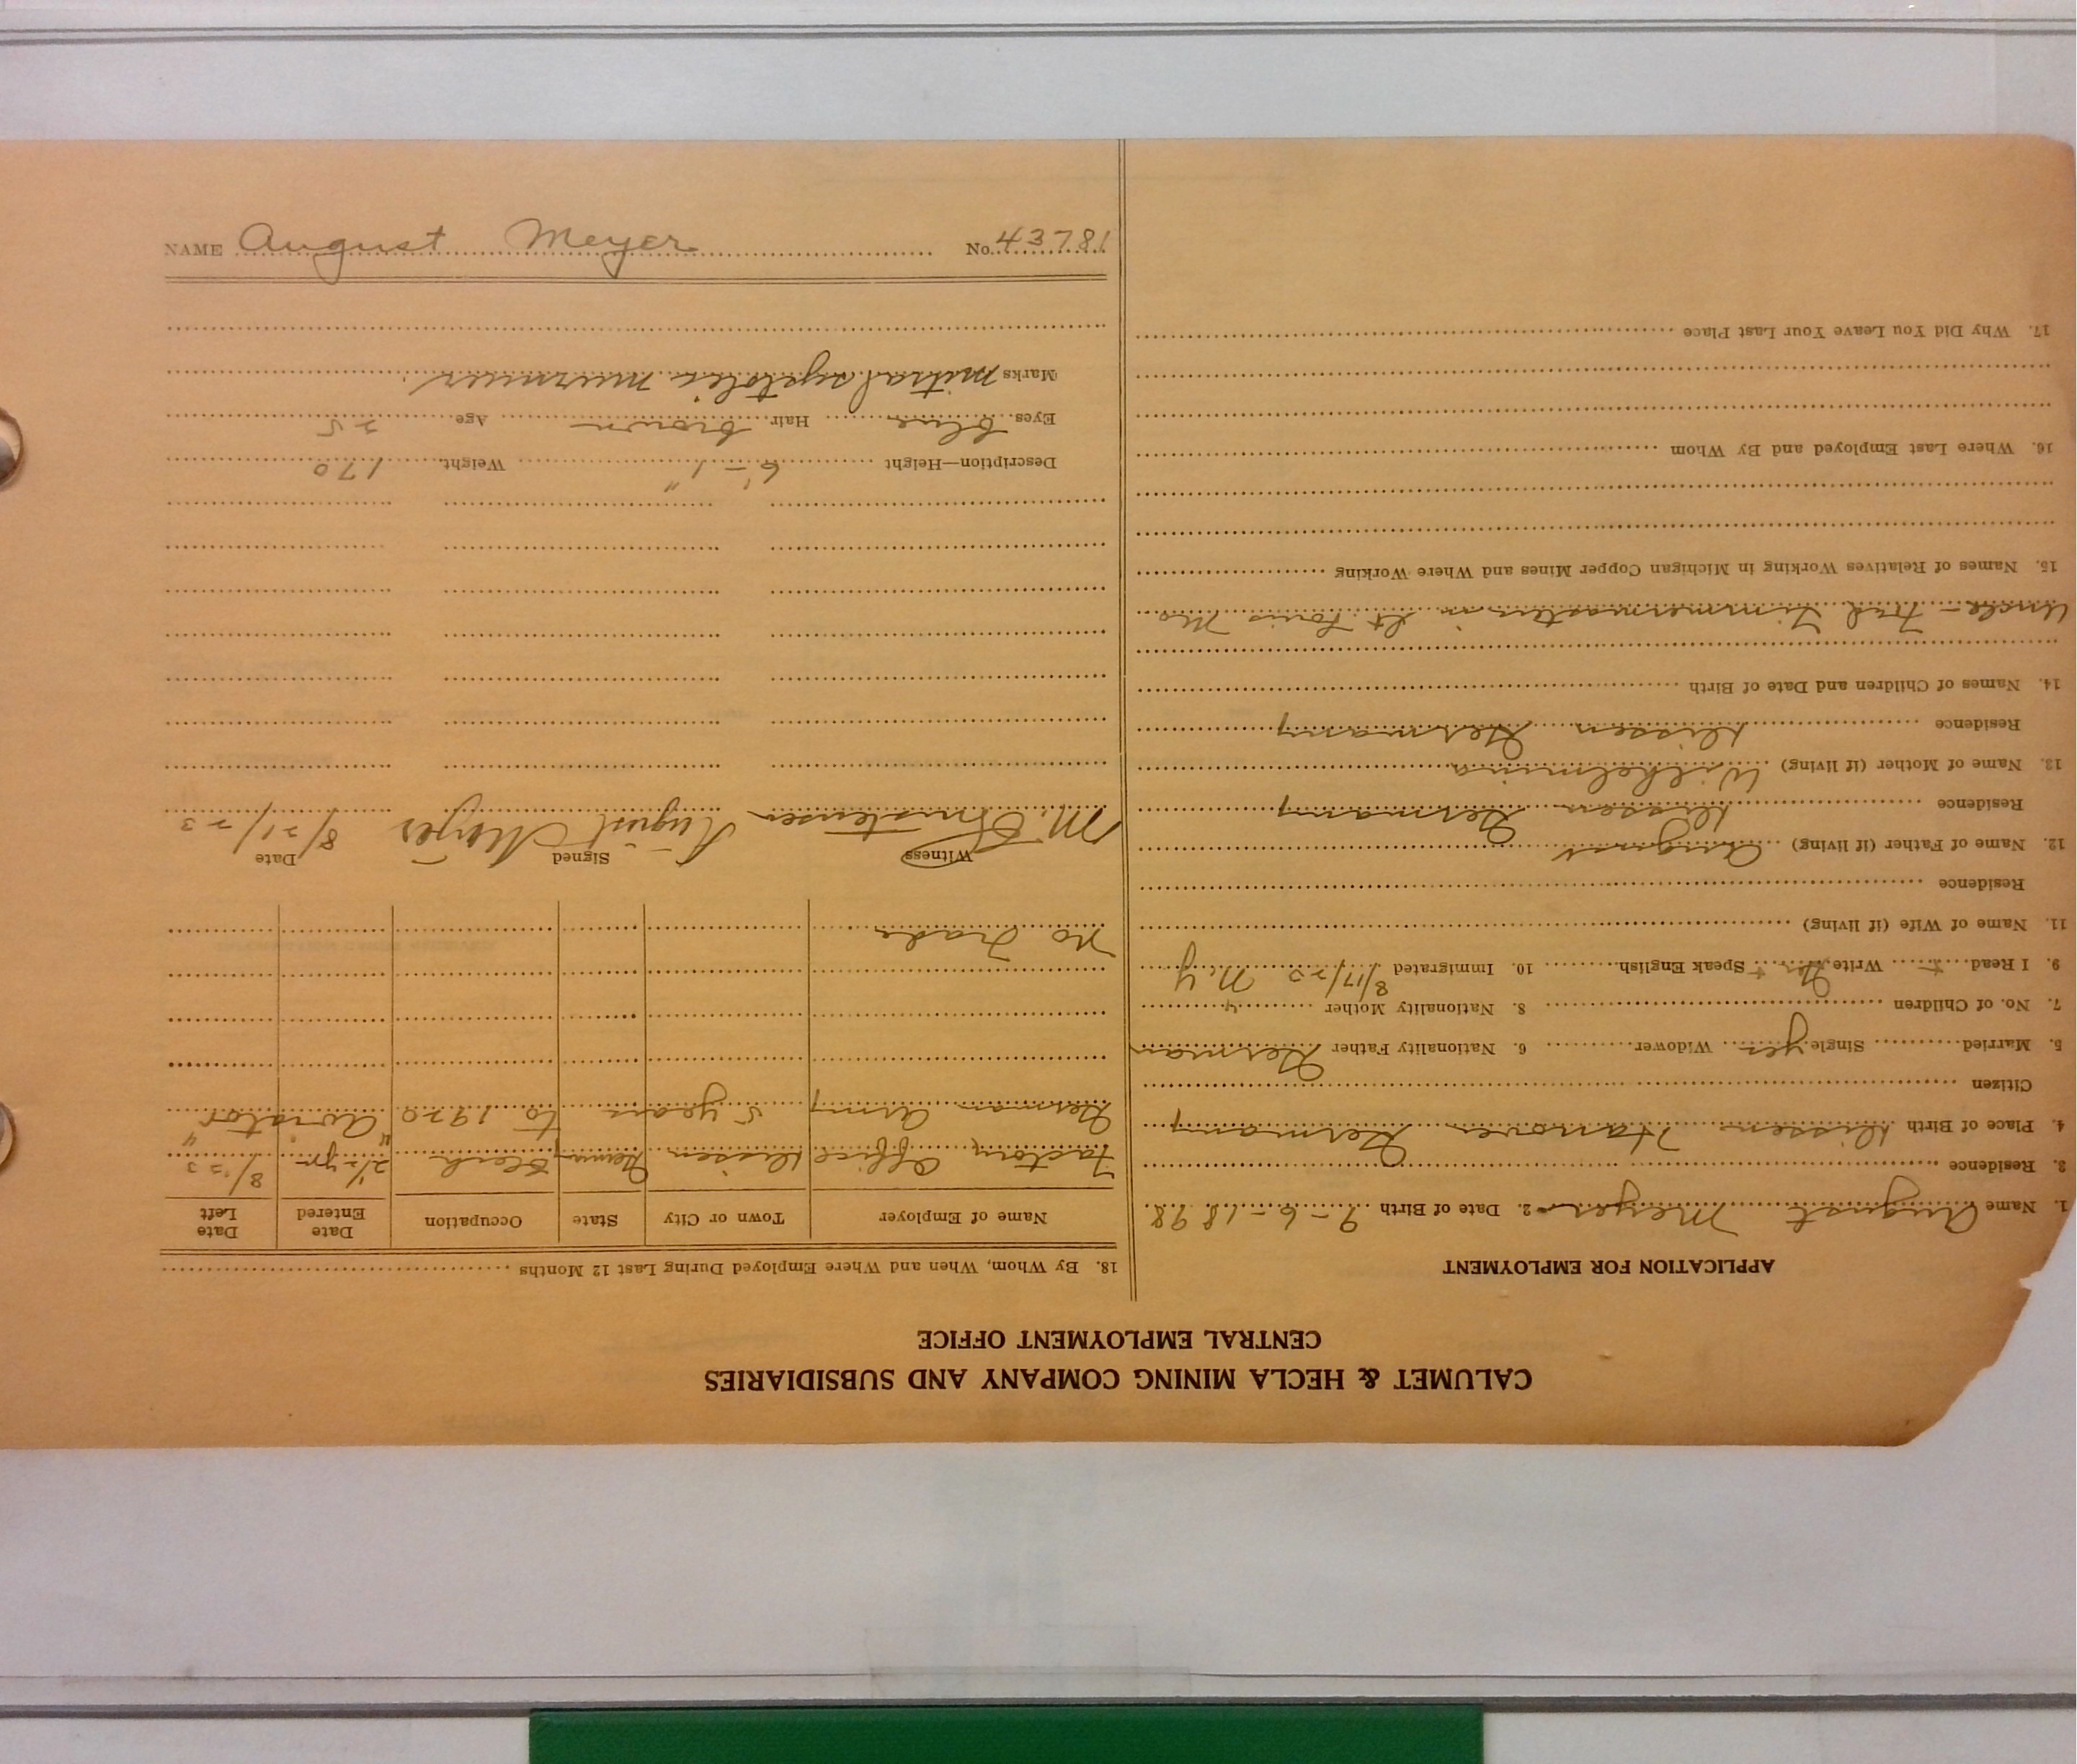 CALUMET & HECLA MINING COMPANY AND SUBSIDIARIES
CENTRAL EMPLOYMENT OFFICE
APPLICATION FOR EMPLOYMENT
1. Name August Meyer 2. Date of Birth 9-6-1898
3. Residence
4. Place of Birth Hanover Germany
Citizen
5. Married Single yes Widower 6. Nationality Father German
7. No. of Children 8. Nationality Mother "
9. I Read + Write Ger + Speak English 10. Immigrated 8/17/23 N.Y
11. Name of Wife (if living)
Residence
12. Name of Father (if living) August
Residence Germany
13. Name of Mother (if living) Wilhelmina
Residence Germany
14. Names of Children and Date of Birth
Uncle - Fred in St Louis Mo
15. Names of Relatives Working in Michigan Copper Mines and Where Working
16. Where Last Employed and By Whom
17. Why Did You Leave Your Last Place
18. By Whom, When and Where Employed During Last 12 Months
Name of Employer Town or City State Occupation Date Entered Date Left
Factory Office Germany Clerk 2 1/2 yr 8/23
German Army 5 years to 1920 " Aviator "
No Trade
Witness Signed Date
M. Christensen August Meyer 8/21/23
Description—Height 6'-1" Weight 170
Eyes blue Hair brown Age 25
Marks mitral systolic murmur
NAME August Meyer No. 43781